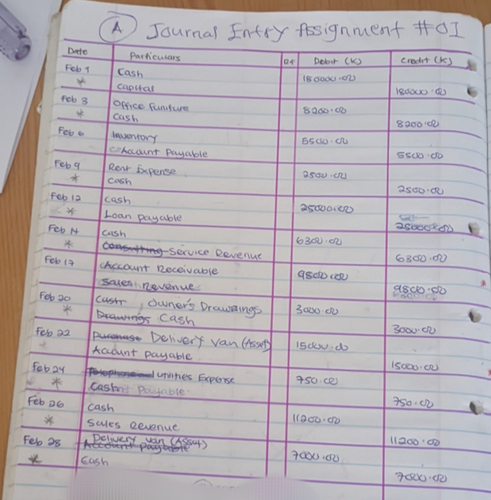 A Journal Entry Assignment #01
Date Particulars Debit (K) Credit (K)
Feb 1 Cash 180000.00
* Capital 180000.00
Feb 3 Office Funiture 8200.00
* Cash 8200.00
Feb 6 Inventory 5500.00
Account Payable 5500.00
Feb 9 Rent Expense 2500.00
* Cash 2500.00
Feb 12 Cash 25000.00
* Loan payable 25000.00
Feb 14 Cash 6300.00
* Consulting Service Revenue 6300.00
Feb 17 Account Receivable 9800.00
Sales Revenue 9800.00
Feb 20 Cash, Owner's Drawings 3000.00
* Drawings Cash 3000.00
Feb 22 Purchase Delivery Van (Asset) 15000.00
Account Payable 15000.00
Feb 24 Utilities Expense 750.00
* Cash Payable 750.00
Feb 26 Cash 11200.00
* Sales Revenue 11200.00
Feb 28 Delivery Van (Asset)
Account payable 7000.00
* Cash 7000.00